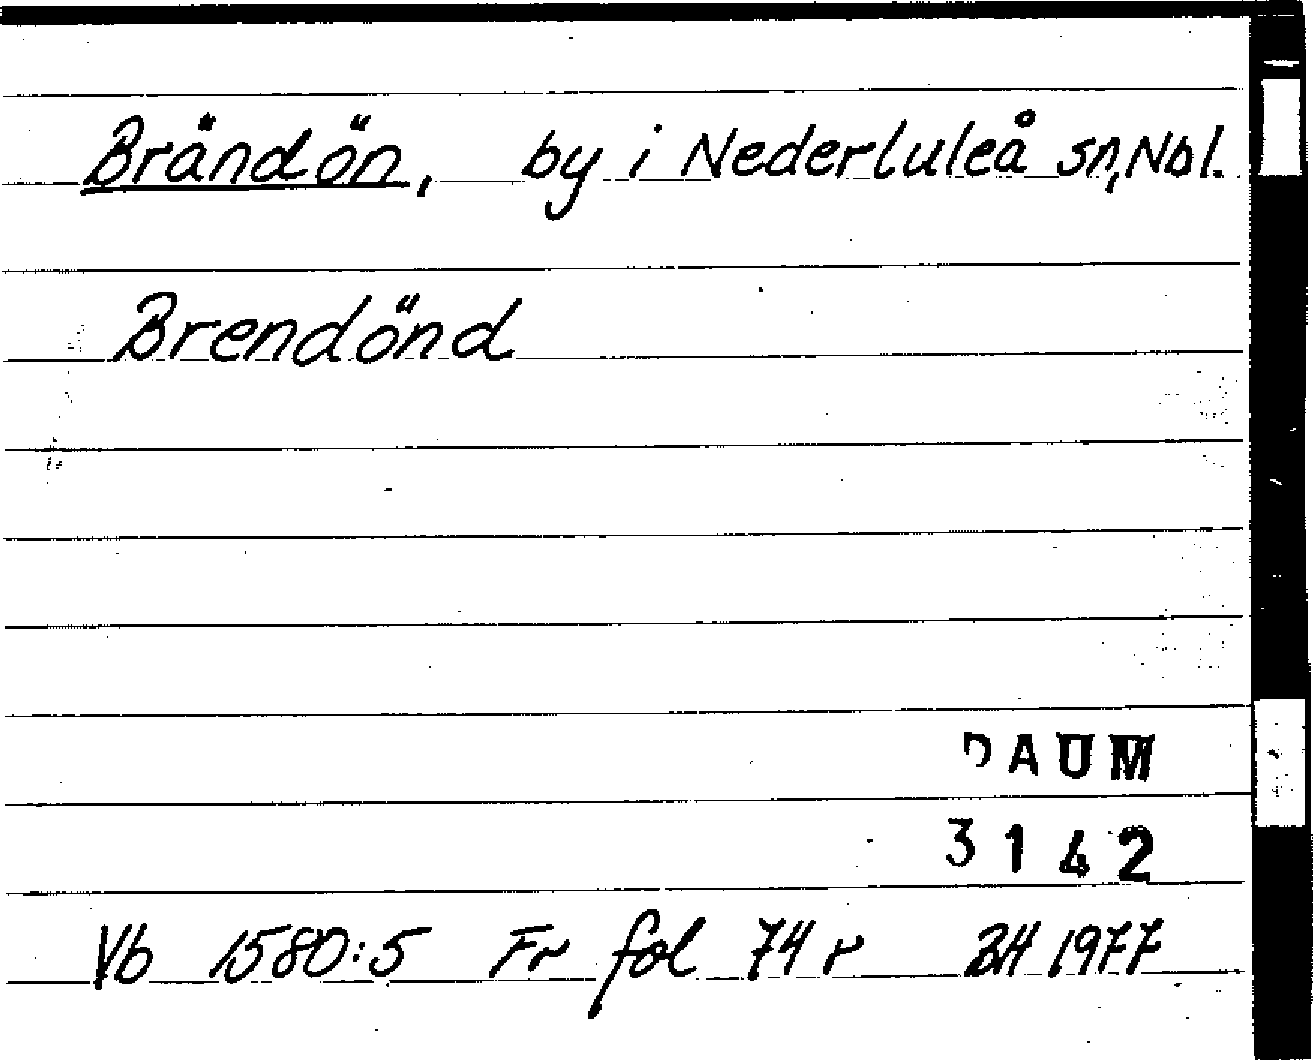 Brändön, by i Nederluleå sn, Nbl.
Brendönd
DAUM
3142
Vb 1580:5 Fr fol 74 r BH 1977